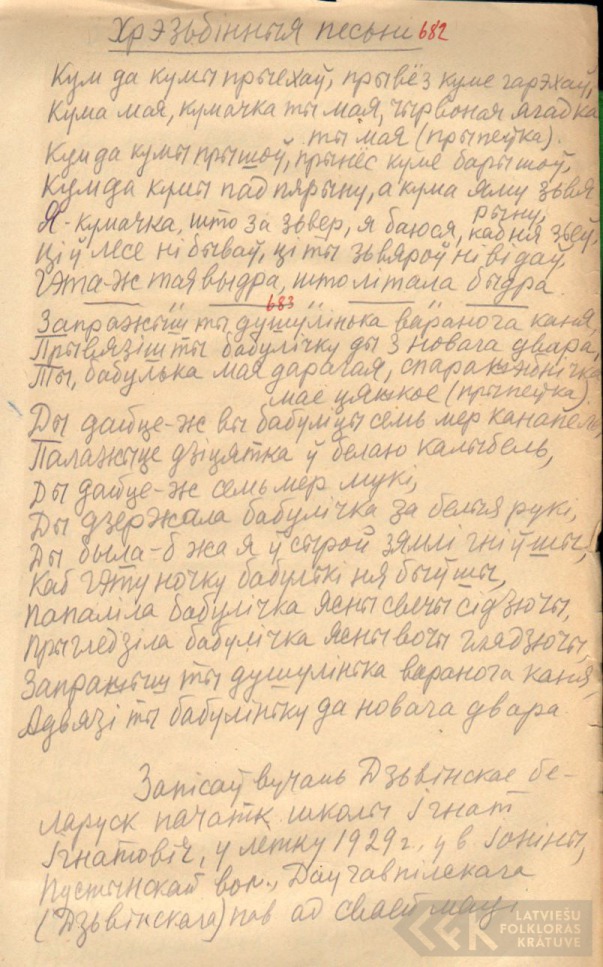 Хрэзьбінныя песьні 682
Кум да кумы прыехаў, прывёз куме гарэхаў,
Кума мая, кумачка ты мая, чырвоная ягадка
ты мая (прыпеўка).
Кум да кумы прышоў, прынёс куме барышоў,
Кум да кумы пад пярыну, а кума яму зьвя
рыну,
Я - кумачка, што за зьвер, я баюся, каб ня зьеў,
Ці ў лесе ні бываў, ці ты зьвяроў ні відаў,
Гэта-ж тая выдра, што літала быдра.
683
Запражыш ты душулінька варанога каня,
Прывязіш ты бабулічку ды з новага двара,
Ты, бабулька мая дарагая, спаражэнічка
мае цяжкое (прыпеўка).
Ды дайце-ж вы бабуліцы семь мер канапель,
Палажыце дзіцятка ў белаю калыбель,
Ды дайце-ж семь мер мукі,
Ды дзержала бабулічка за белыя рукі,
Ды была-б жа я ў сырой зямлі гніўшы,
Каб гэту ночку бабулькі ня быўшы,
Папаліла бабулічка ясны свечы сідзючы,
Прыгледзіла бабулічка ясны вочы глядзючы,
Запражыш ты душулінька варанога каня,
Адвязі ты бабуліньку да новага двара.
Запісаў вучань Дзьвінскае бе-
ларуск пачатк. школы Ігнат
Ігнатовіч, у летку 1929 г. у в. Іоніны,
Пустынскай вол., Даугавпілскага
(Дзьвінскага) пав ад сваей маці.
LATVIEŠU
FOLKLORAS
KRĀTUVE